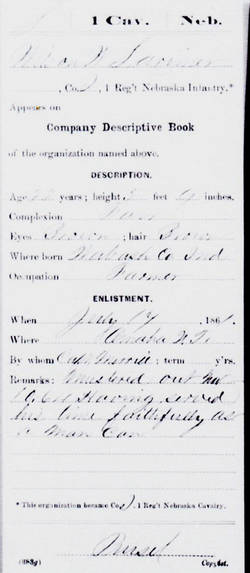 1 Cav. Neb.
, Co. , 1 Reg't Nebraska Infantry.*
Appears on
Company Descriptive Book
of the organization named above.
DESCRIPTION.
Age years; height 5 feet 9 inches.
Complexion Fair
Eyes Brown; hair Brown
Where born Wabash Co Ind
Occupation Farmer
ENLISTMENT.
When July 17, 1861.
Where Omaha N.T.
By whom Capt ; term y'rs.
Remarks: Mustered out
Having served
his time faithfully as
a Man Can
* This organization became Co. , 1 Reg't Nebraska Cavalry.
Copyist.